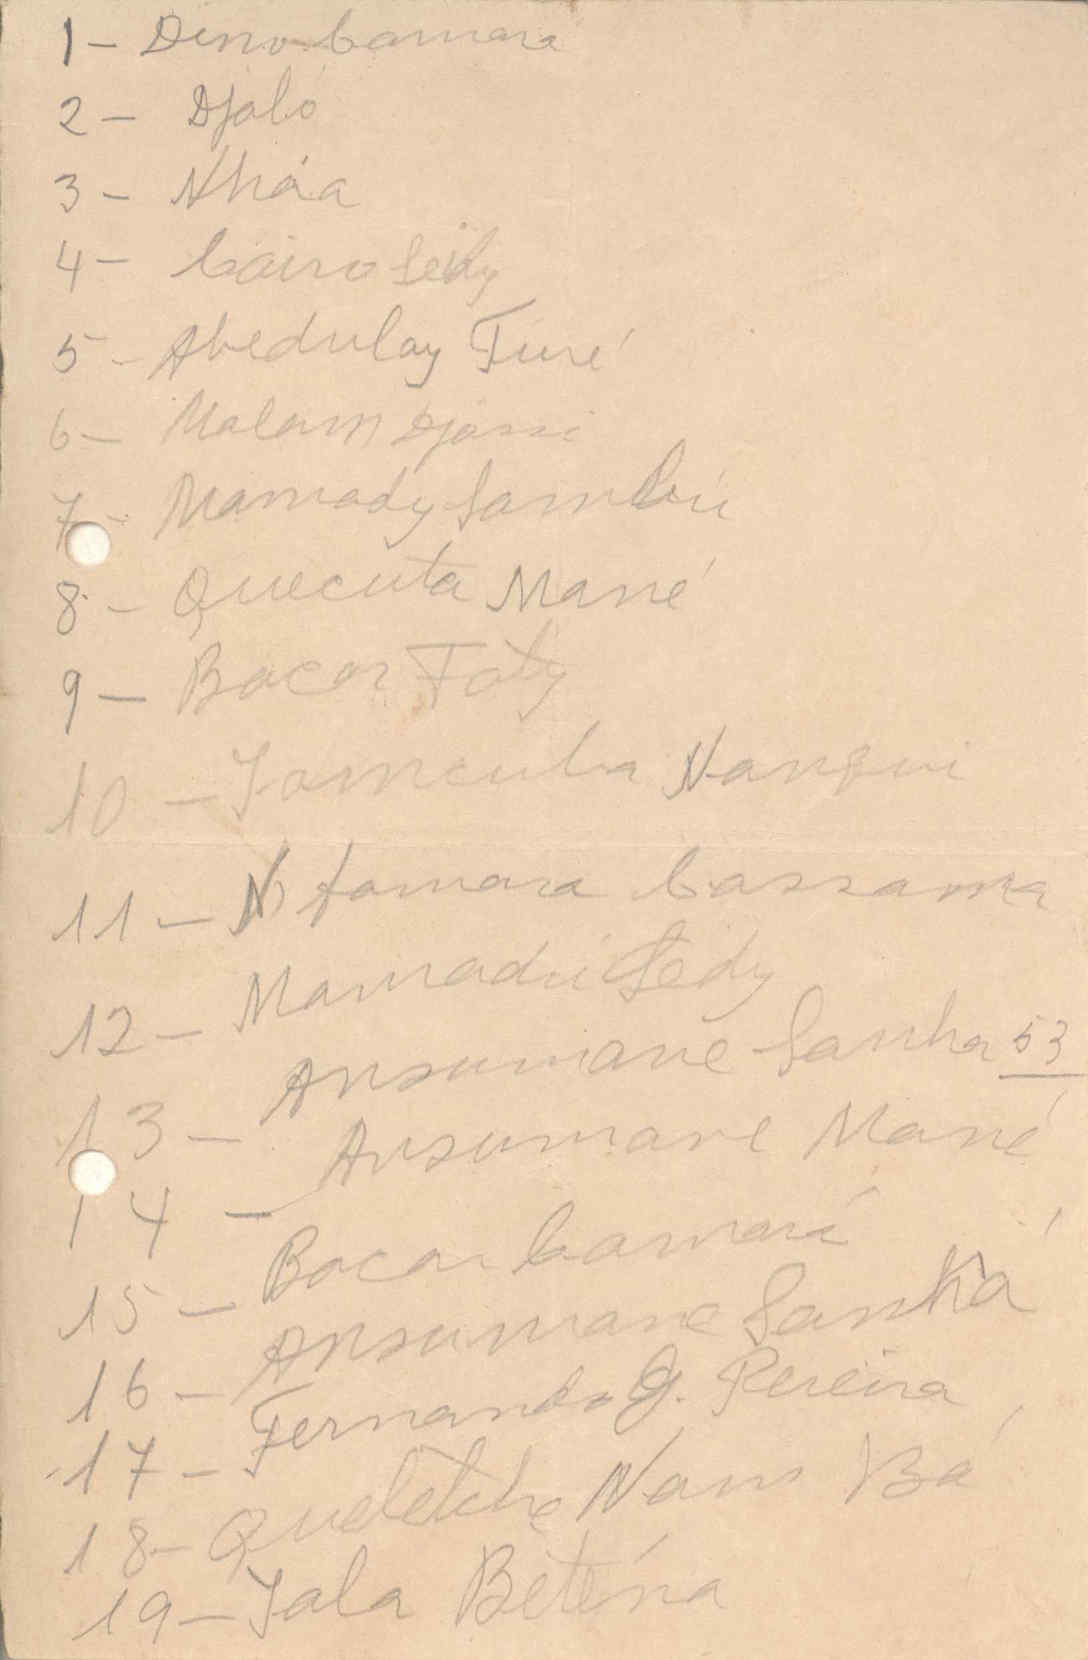 1 - Dino Camara
2 - Djaló
3 - Nháa
4 - Cairo Seidy
5 - Abedulay Turé
6 - Malam Djassi
7 - Mamady Sambú
8 - Quecuta Mané
9 - Bacar Faty
10 - Jamcuba Nanqui
11 - N'famara Cassama
12 - Mamadú Sedy
13 - Ansumane Sanha 53
14 - Ansumane Mané
15 - Bacar Camará
16 - Ansumane Sanhá
17 - Fernando G. Pereira
18 - Nam Bá
19 - Jala Beténa